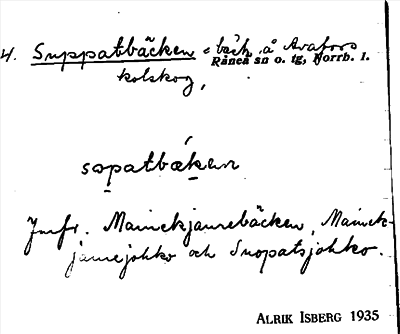 4. Suppatbäcken = bäck å Avafors
Råneå sn o. tg, Norrb. l.
kolskog,
sɷpatbækan
Jmfr. Mainekjaurebäcken, Mainek-
jaurejohko och Snopatsjohko.
ALRIK ISBERG 1935